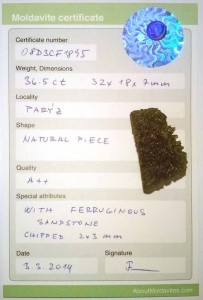 Moldavite certificate
Certificate number
08D3CF1895
Weight, Dimensions
36.5ct 32x18x7mm
Locality
PAŘÍZ
Shape
NATURAL PIECE
Quality
A++
Special attributes
WITH FERRUGINOUS
SANDSTONE
CHIPPED 2x3 mm
Date
Signature
3.3.2014
AboutMoldavites.com